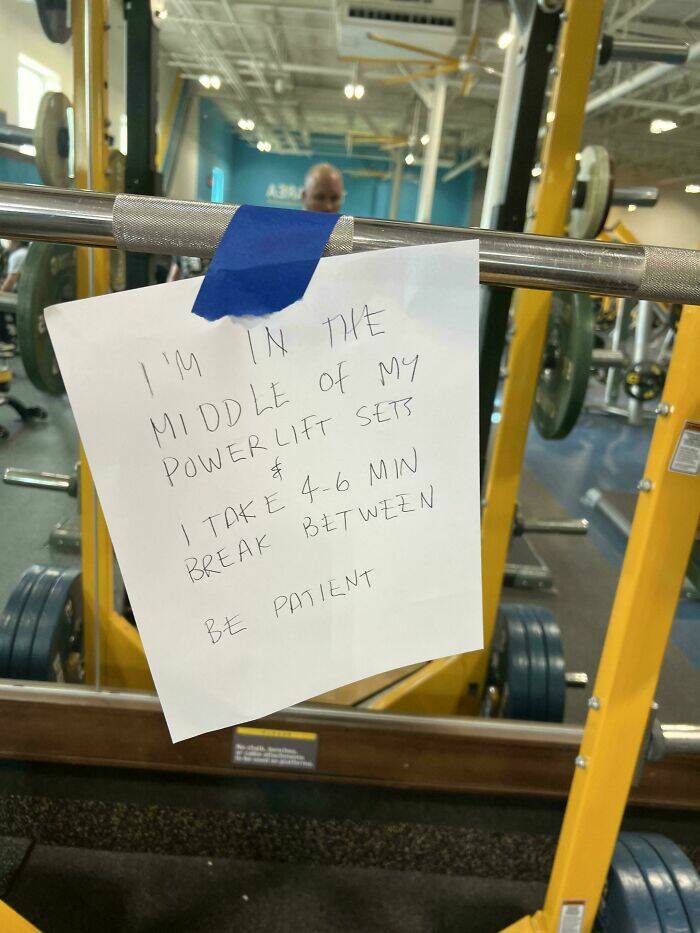 I'M IN THE
MIDDLE OF MY
POWERLIFT SETS
&
I TAKE 4-6 MIN
BREAK BETWEEN
BE PATIENT